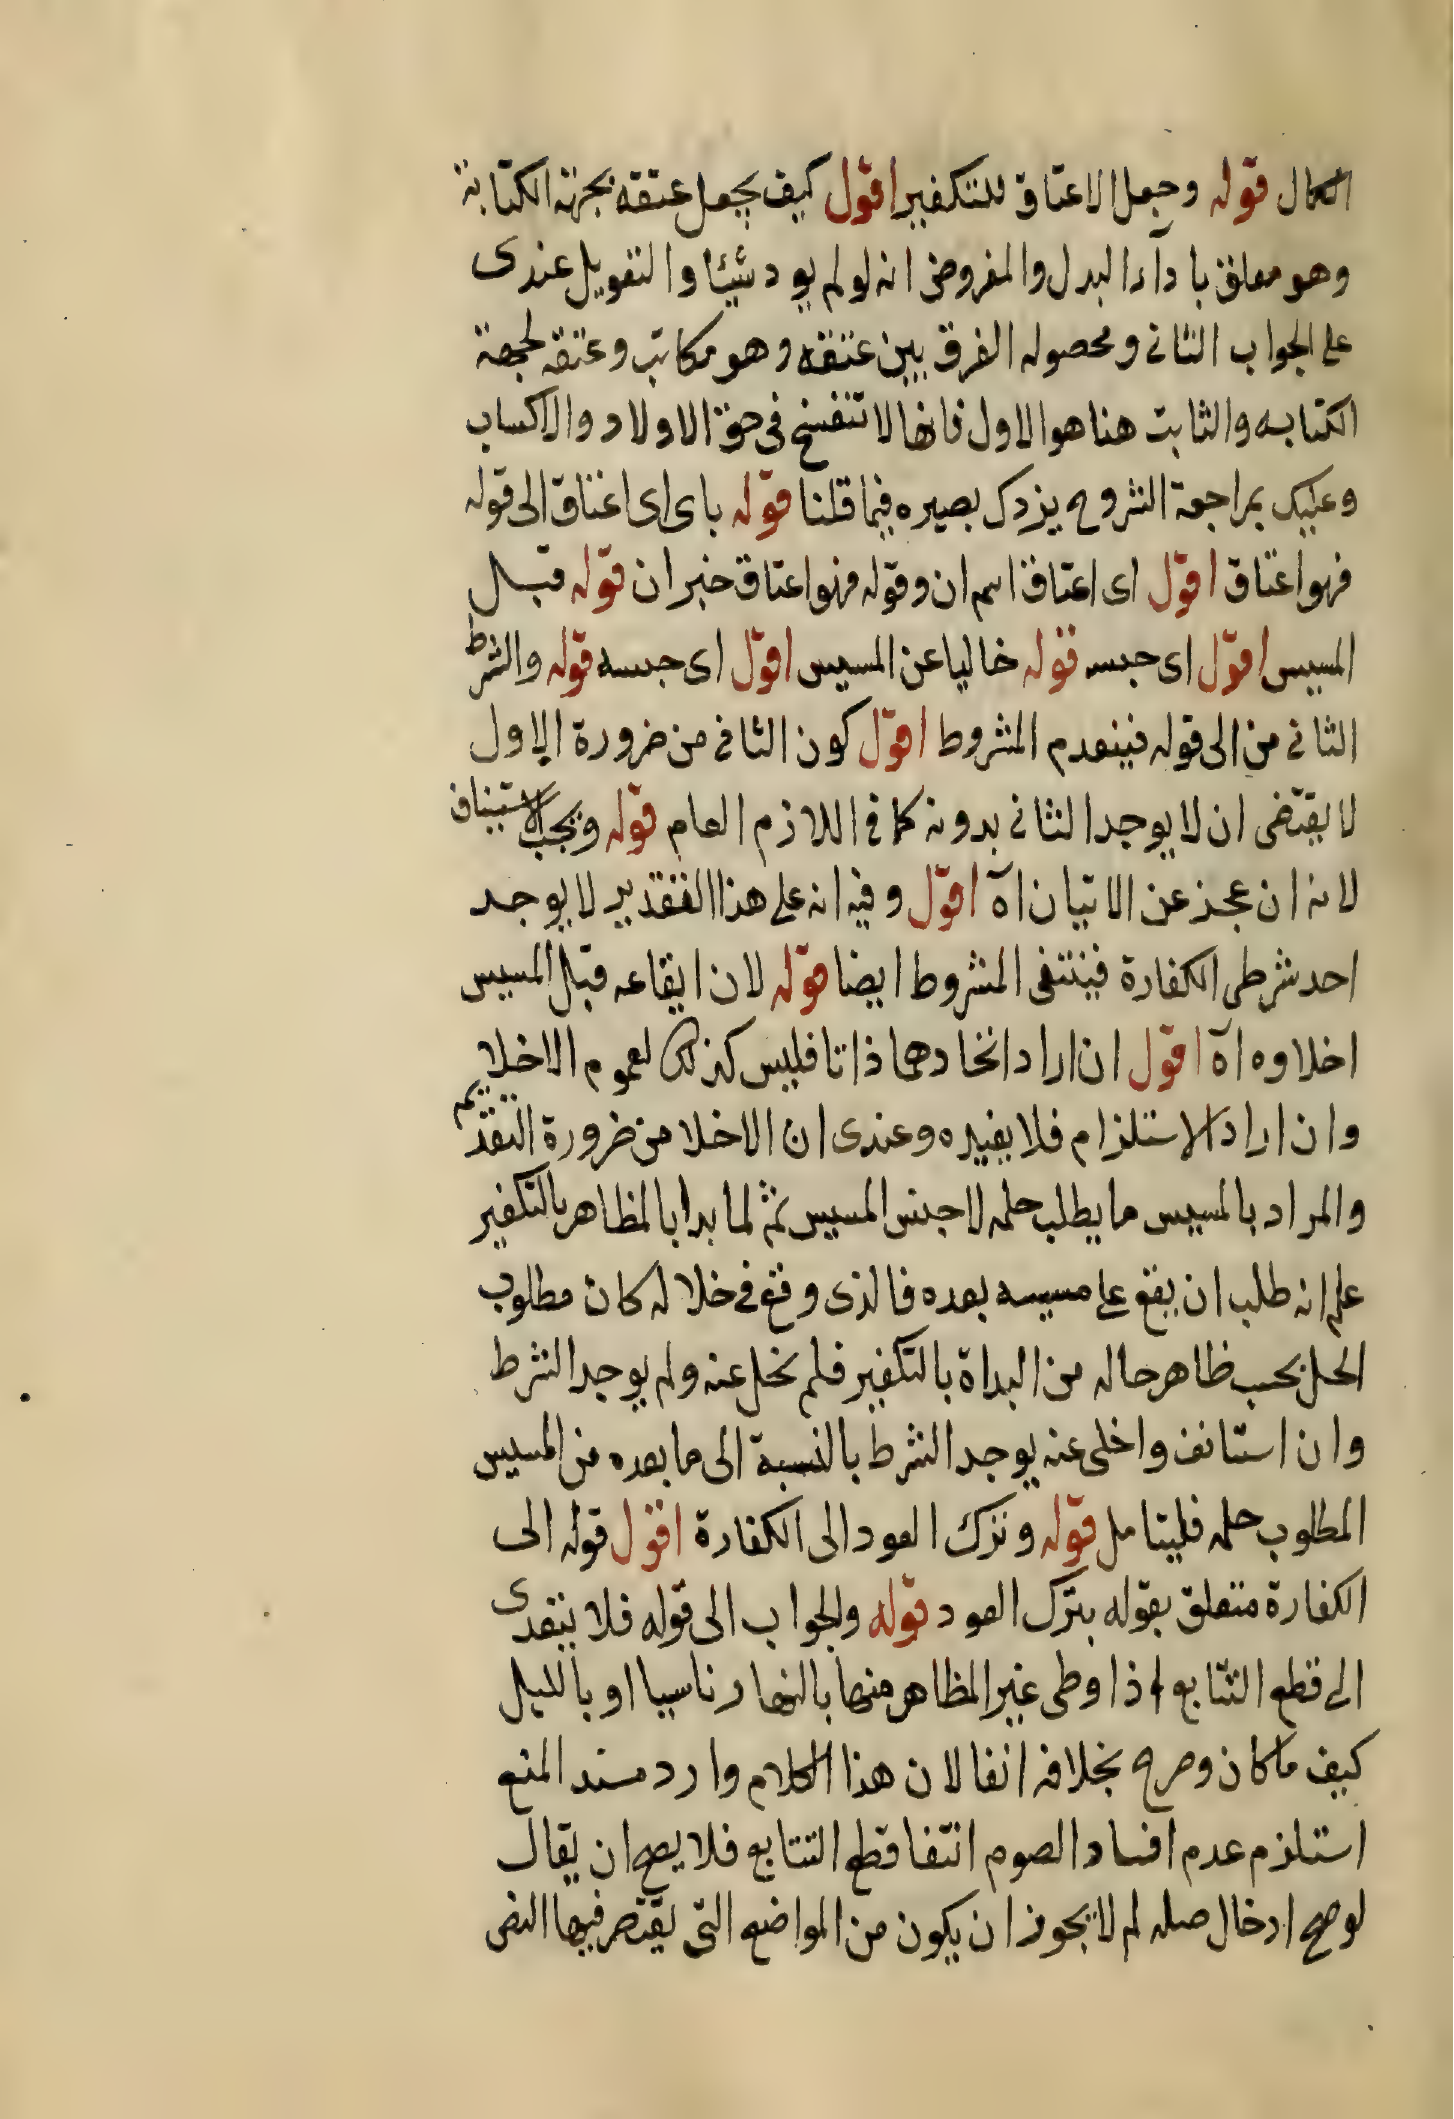 الكمال قوله وجعل الاعتاق للتكفير اقول كيف يجعل عتقه بجهة الكتابة
وهو معلق باداء البدل والمفروض انه لو لم يود شيئا والتعويل عندى
على الجواب الثانى ومحصوله الفرق بين عتقه وهو مكاتب وعتقه لجهة
الكتابه والثابت هنا هو الاول فانها لا تنفسخ فى حق الاولاد والاكساب
وعليك بمراجعة الشروح يزدك بصيره فيما قلنا قوله باى اى اعتاق الى قوله
فهو اعتاق اقول اى اعتاق اسم ان وقوله فهو اعتاق خبر ان قوله قبل
المسيس اقول اى جنسه قوله خاليا عن المسيس اقول اى جنسه قوله والشرط
الثانى من الى قوله فينعدم المشروط اقول كون الثانى من ضرورة الاول
لا يقتضى ان لا يوجد الثانى بدونه كما فى اللازم العام قوله ويجب الاستيناف
لانه ان عجز عن الاتيان اه اقول وفيه انه على هذا التقدير لا يوجد
احد شرطى الكفارة فينتفى المشروط ايضا قوله لان ايقاعه قبل المسيس
اخلاوه اه اقول ان اراد اتحادهما ذاتا فليس كذلك لعموم الاخلا
وان اراد الاستلزام فلا يفيده وعندى ان الاخلا من ضرورة التقديم
والمراد بالمسيس ما يطلب حله لا جنس المسيس ثم لما بدا بالمظاهر بالتكفير
علم انه طلب ان يقع على مسيسه بعده فالذى وقع فى خلاله كان مطلوب
الحل بحسب ظاهر حاله من البداة بالتكفير فلم يخل عنه ولم يوجد الشرط
وان استانف واخلى عنه يوجد الشرط بالنسبة الى ما بعده من المسيس
المطلوب حله فليتامل قوله ونترك العود الى الكفارة اقول قوله الى
الكفارة متعلق بقوله بترك العود قوله والجواب الى قوله فلا يتعدى
الى قطع التتابع اذا وطى غير المظاهر منها بالنهار ناسيا او بالليل
كيف ما كان وصرح بخلافه انفا لان هذا الكلام وارد مسند المنع
استلزم عدم افساد الصوم انتفا قطع التتابع فلا يصح ان يقال
لو صح ادخال صله لم لا يجوز ان يكون من المواضع التى يقتصر فيها النص